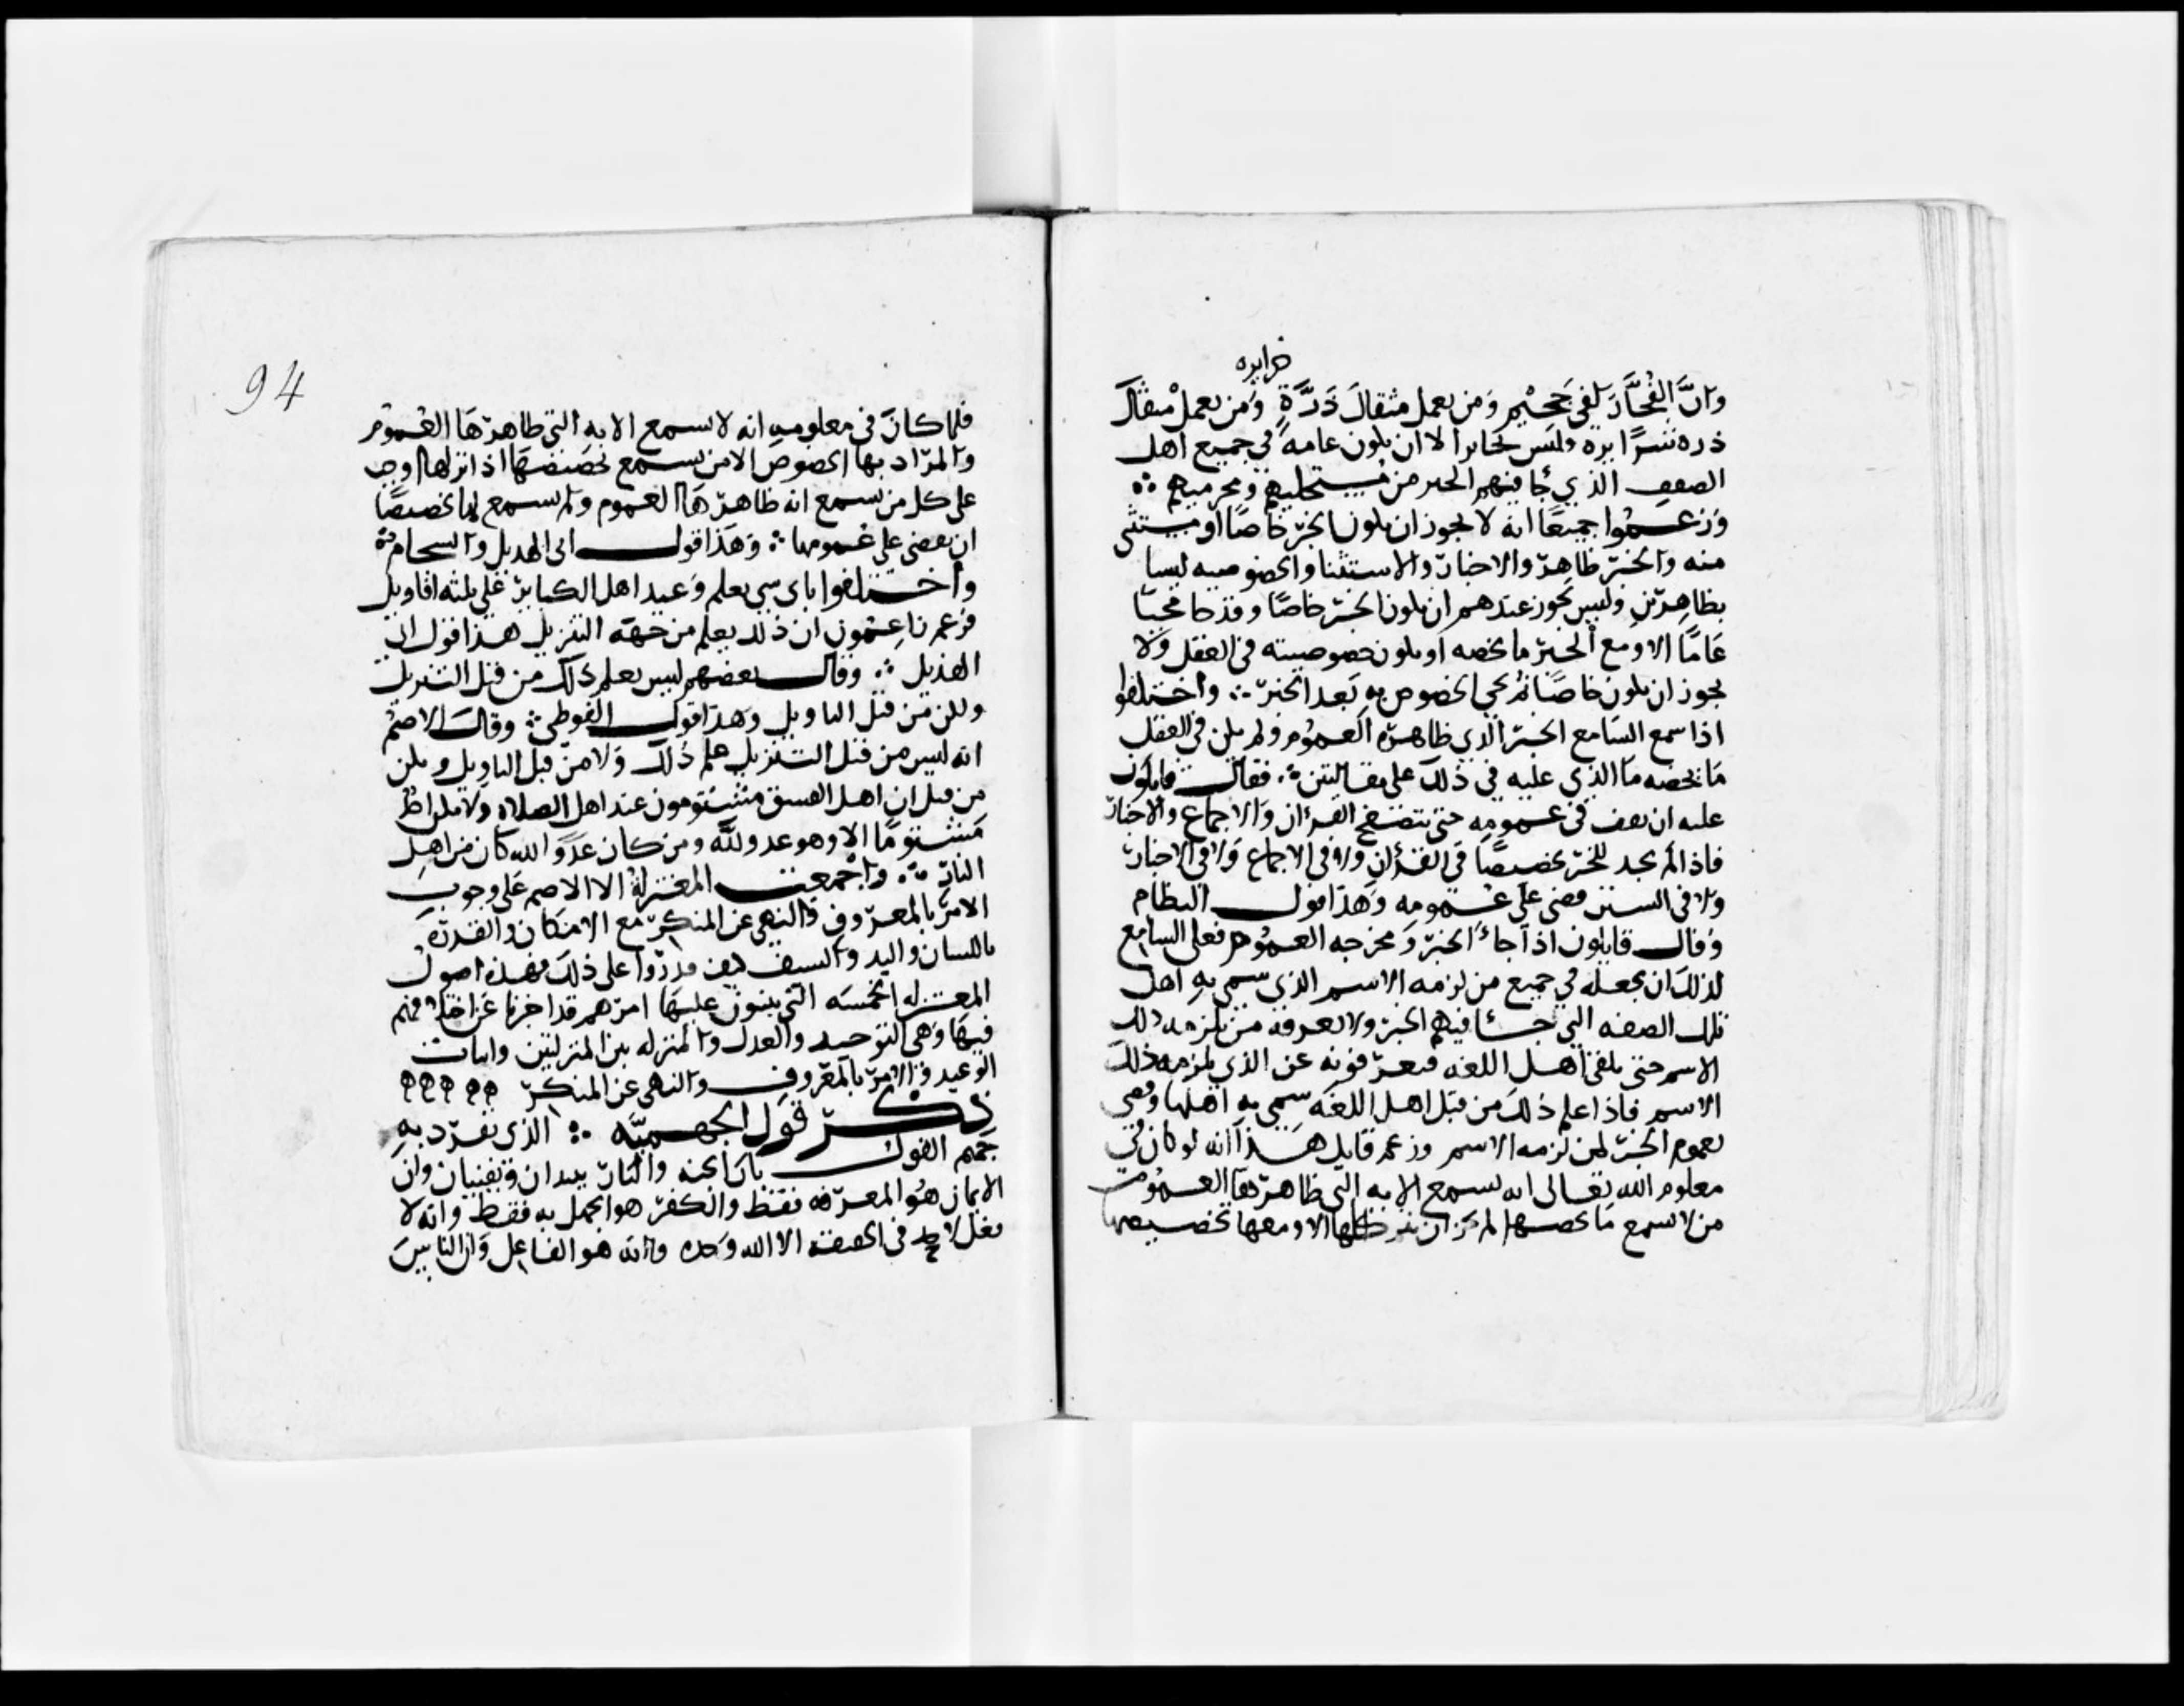 خيرا يره
وان الفجار لفي جحيم ومن يعمل مثقال ذرة ومن يعمل مثقال
ذره شرا يره وليس بجايز الا ان يكون عامة في جميع اهل
الصفه الذي جا فيهم الخبر من مستحليهم ومحرميهم ⁘
وزعموا جميعا انه لا يجوز ان يكون الخبر خاصا او مستثنى
منه والخبر ظاهر والاخبار والاستثنا والخصوصيه ليسا
بظاهرين وليس يجوز عندهم ان يكون الخبر خاصا وقد جا مجيا
عاما الا ومع الخبر ما يخصه او يكون خصوصيته في العقل ولا
يجوز ان يكون خاصا ثم يجي الخصوص به بعد الخبر ⁘ واختلفوا
اذا سمع السامع الخبر الذي ظاهره العموم ولم يكن في العقل
ما يخصه ما الذي عليه في ذلك على مقالتين ⁘ فقال قايلون
عليه ان يقف في عمومه حتى يتصفح القرءان والاجماع والاخبار
فاذا لم يجد للخبر تخصيصا في القرءان ولا في الاجماع ولا في الاخبار
ولا في السنن قضى على عمومه وهذا قول النظام
وقال قايلون اذا جاء الخبر ومخرجه العموم فعلى السامع
لذلك ان يجعله في جميع من لزمه الاسم الذي سمي به اهل
تلك الصفه التي جا فيهم الخبر ولا يعرفه من يلزمه ذلك
الاسم حتى يلقى اهل اللغه فيعرفونه عن الذي يلزمه ذلك
الاسم فاذا علم ذلك من قبل اهل اللغه سمى به اهلها وقضى
بعموم الخبر لمن لزمه الاسم وزعم قايل هذا انه لو كان في
معلوم الله تعالى انه يسمع الايه التي ظاهرها العموم
من لا يسمع ما يخصها لم يجز ان ينزلها الا ومعها تخصيصها
94
فلما كان في معلومه انه لا يسمع الايه التي ظاهرها العموم
والمراد بها الخصوص الا من يسمع تخصيصها اذا انزلها اوجب
على كل من سمع انه ظاهرها العموم ولم يسمع لها تخصيصا
ان يقضي على عمومها ⁘ وهذا قول ابي الهذيل والشحام ⁘
واختلفوا باي شي يعلم وعيد اهل الكباير على ثلثه اقاويل
فزعم زاعمون ان ذلك يعلم من جهة التنزيل هذا قول ابي
الهذيل ⁘ وقال بعضهم ليس يعلم ذلك من قبل التنزيل
ولكن من قبل التاويل وهذا قول الفوطي ⁘ وقال الاصم
انه ليس من قبل التنزيل علم ذلك ولا من قبل التاويل ولكن
من قبل ان اهل الفسق مشتومون عند اهل الصلاه ولا يكن احد
مشتوما الا وهو عدو لله ومن كان عدوا لله كان من اهل
النار ⁘ واجمعت المعتزلة الا الاصم على وجوب
الامر بالمعروف والنهي عن المنكر مع الامكان والقدرة
باللسان واليد والسيف كيف قدروا على ذلك فهذه اصول
المعتزله الخمسه التي يبنون عليها امرهم قد اخبرنا عن اختلافهم
فيها وهي التوحيد والعدل والمنزله بين المنزلتين واثبات
الوعيد والامر بالمعروف والنهي عن المنكر
ذكر قول الجهميه ⁘ الذي تفرد به
جهم القول بان الجنه والنار يبيدان ويفنيان وان
الايمان هو المعرفه فقط والكفر هو الجهل به فقط وانه لا
فعل لاحد في الحقيقه الا الله وحده وانه هو الفاعل وان الناس